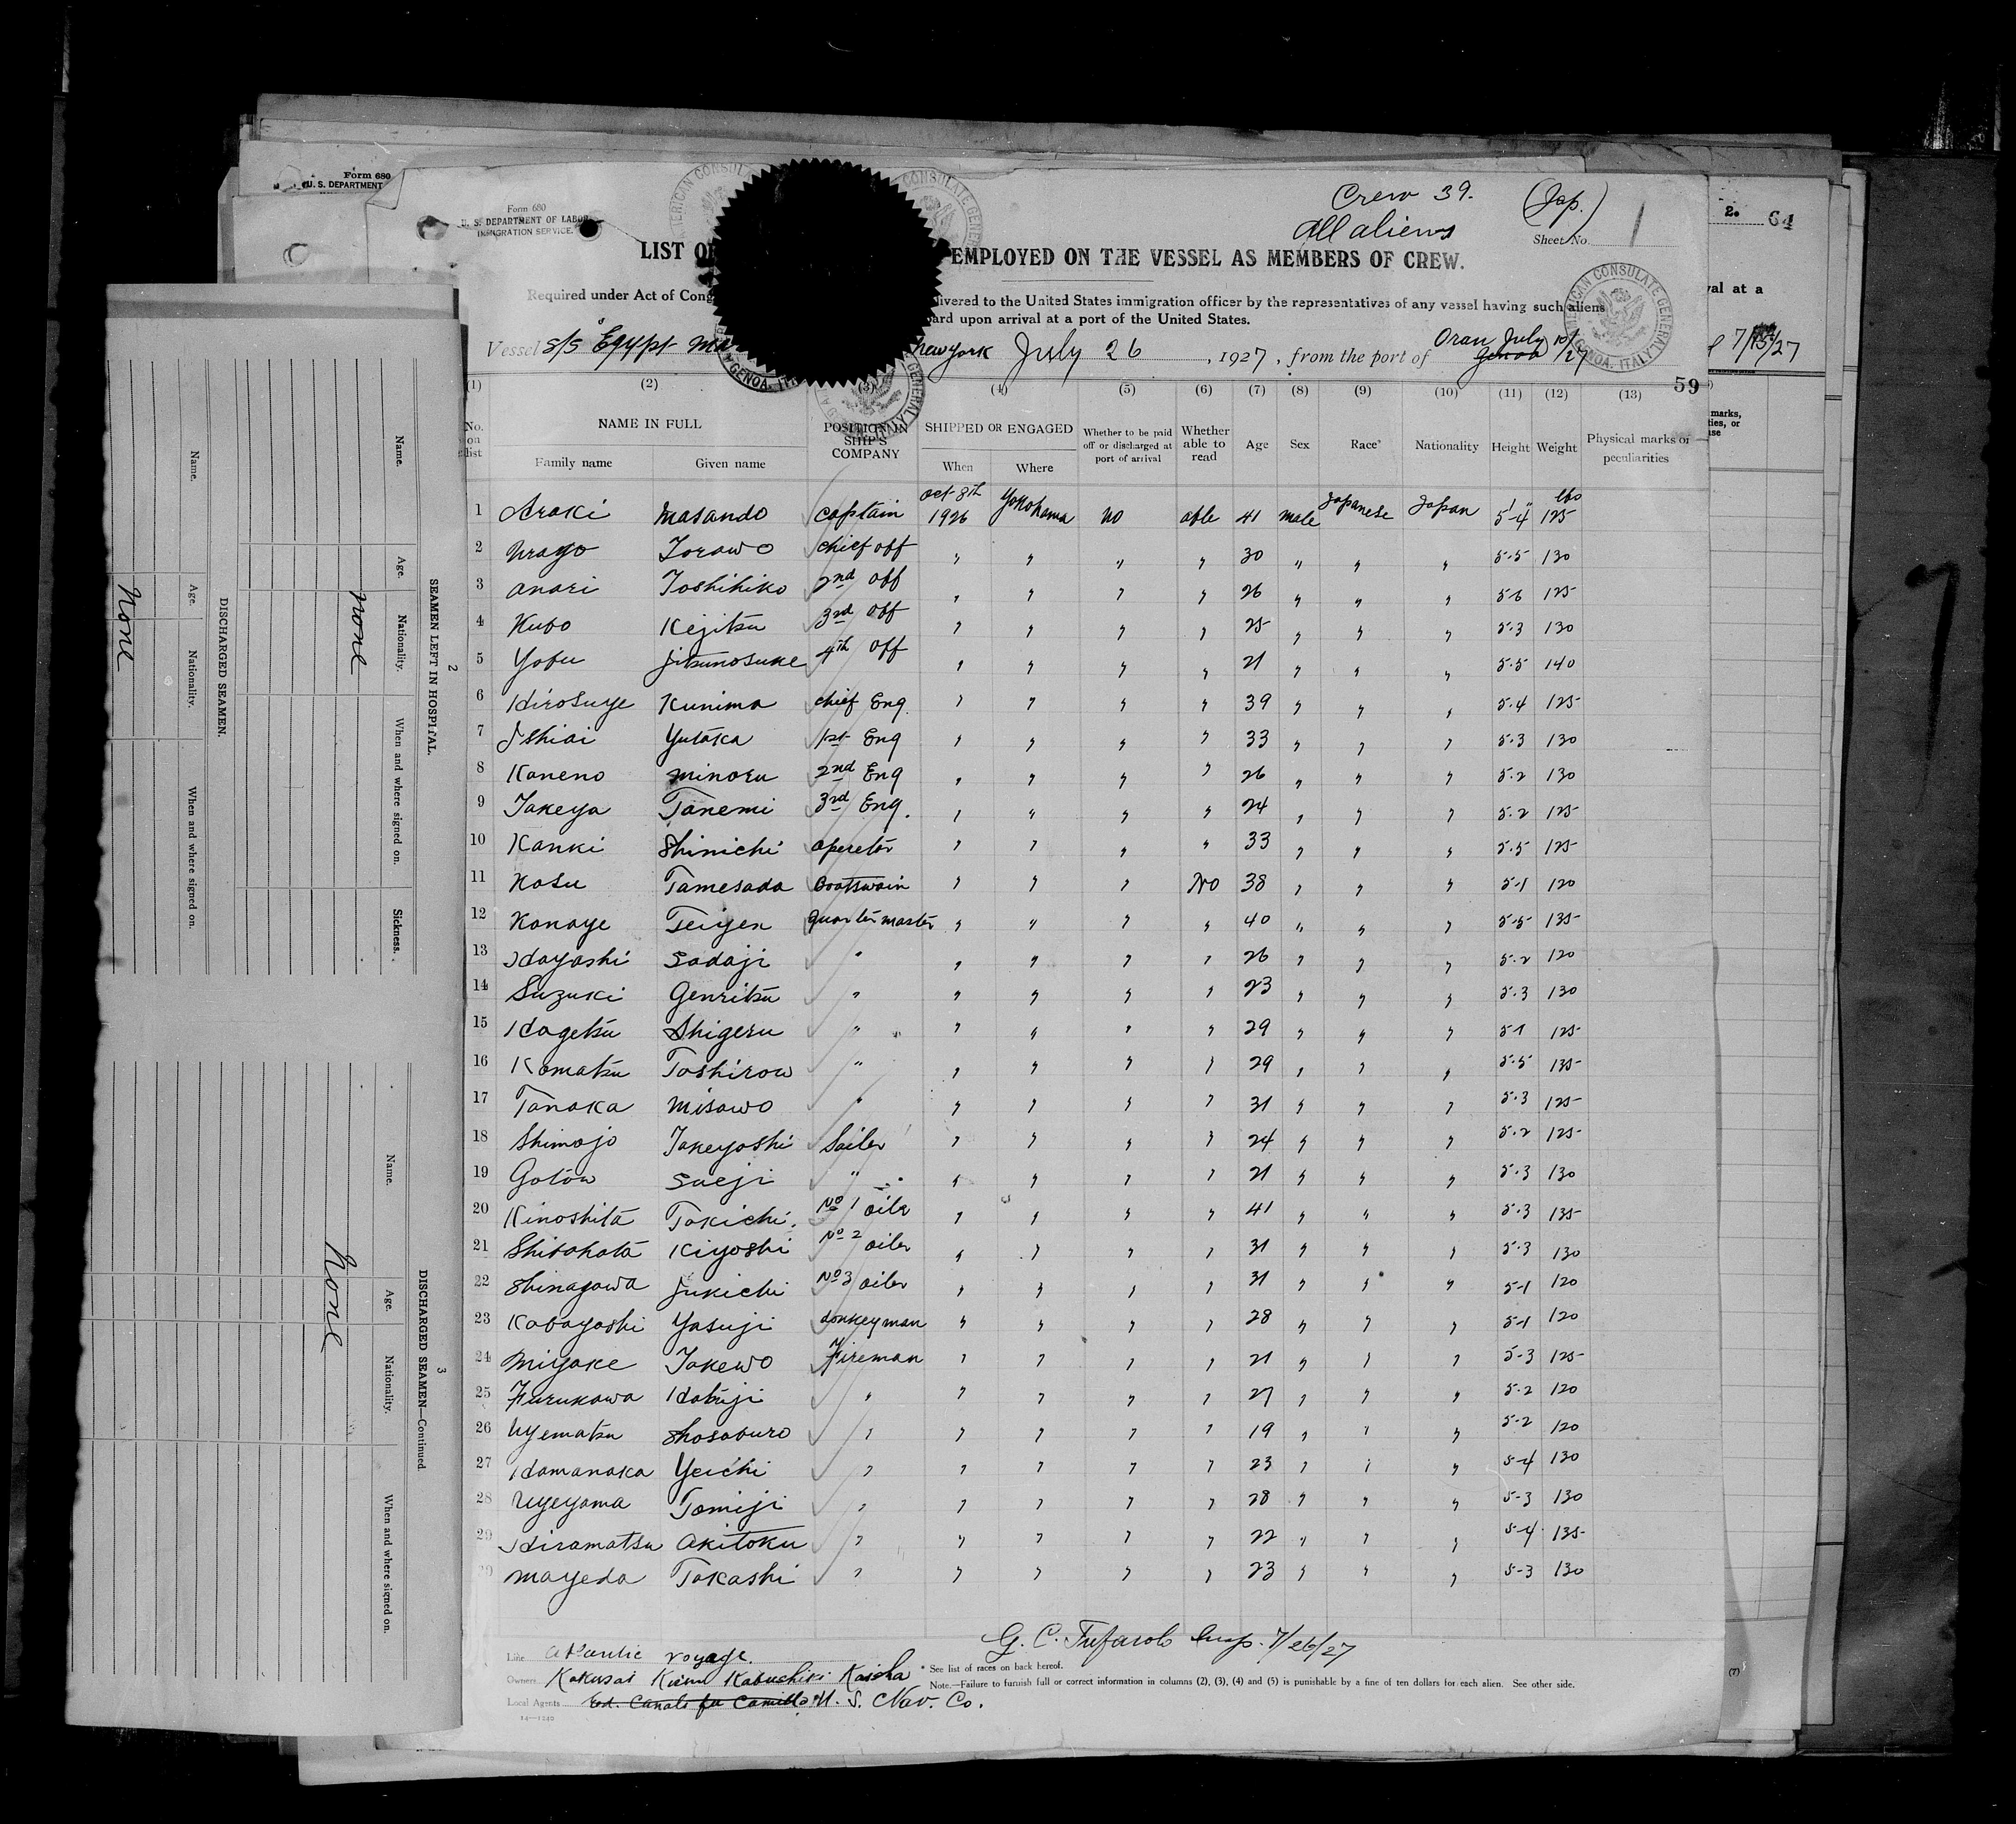 Form 680
U. S. DEPARTMENT
Form 680
U. S. DEPARTMENT OF LABOR
IMMIGRATION SERVICE.
Crew 39.
(Jap.)
All aliens
Sheet No. 1
2. 64
LIST OF EMPLOYED ON THE VESSEL AS MEMBERS OF CREW.
Required under Act of Cong livered to the United States immigration officer by the representatives of any vessel having such aliens
oard upon arrival at a port of the United States.
val at a
Vessel S/S Egypt Ma New York July 26, 1927, from the port of Oran July 10/27 Genoa
7/15/27
AMERICAN CONSULATE GENERAL, GENOA, ITALY.
59
(1) (2) (3) (4) (5) (6) (7) (8) (9) (10) (11) (12) (13)
No. on list NAME IN FULL POSITION IN SHIP'S COMPANY SHIPPED OR ENGAGED Whether to be paid off or discharged at port of arrival Whether able to read Age Sex Race* Nationality Height Weight Physical marks or peculiarities
Family name Given name When Where
1 Araki Masando Captain Oct 8th 1926 Yokohama No able 41 male Japanese Japan 5'-4" 125 lbs
2 Urago Torawo Chief off " " " " 30 " " " 5-5 130
3 Anari Toshihiko 2nd off " " " " 26 " " " 5-6 125
4 Kubo Kejitsu 3rd off " " " " 25 " " " 5-3 130
5 Yobu Jitsunosuke 4th off " " " " 21 " " " 5-5 140
6 Hirosuye Kunima Chief Eng. " " " " 39 " " " 5-4 125
7 Ishiai Yutaka 1st Eng " " " " 33 " " " 5-3 130
8 Kaneno Minoru 2nd Eng " " " " 26 " " " 5-2 130
9 Takeya Tanemi 3rd Eng. " " " " 24 " " " 5-2 125
10 Kanki Shinichi Operator " " " " 33 " " " 5-5 125
11 Kosu Tamesada Boatswain " " " No 38 " " " 5-1 120
12 Kanaye Teiyen quarter master " " " " 40 " " " 5-5 135
13 Hayashi Sadaji " " " " " 26 " " " 5-2 120
14 Suzuki Genritsu " " " " " 23 " " " 5-3 130
15 Hagetsu Shigeru " " " " " 29 " " " 5-1 125
16 Komatsu Toshirow " " " " " 29 " " " 5-5 135
17 Tanaka Misawo " " " " " 31 " " " 5-3 125
18 Shimojo Takeyoshi Sailer " " " " 24 " " " 5-2 125
19 Gotow Sueji " " " " " 21 " " " 5-3 130
20 Kinoshita Tokichi. No 1 oiler " " " " 41 " " " 5-3 135
21 Shibahata Kiyoshi No 2 oiler " " " " 31 " " " 5-3 130
22 Shinagawa Jukichi No 3 oiler " " " " 31 " " " 5-1 120
23 Kobayashi Yasuji donkeyman " " " " 28 " " " 5-1 120
24 Miyake Takewo Fireman " " " " 21 " " " 5-3 125
25 Furukawa Hatuji " " " " " 27 " " " 5-2 120
26 Uyematsu Shosaburo " " " " " 19 " " " 5-2 120
27 Hamanaka Yeichi " " " " " 23 " " " 5-4 130
28 Uyeyama Tomiji " " " " " 28 " " " 5-3 130
29 Hiramatsu Akitoku " " " " " 22 " " " 5-4 135
30 Mayeda Takashi " " " " " 23 " " " 5-3 130
Line Atlantic voyage.
Insp. 7/26/27
Owners Kokusai Kisen Kabushiki Kaisha
* See list of races on back hereof.
Note.—Failure to furnish full or correct information in columns (2), (3), (4) and (5) is punishable by a fine of ten dollars for each alien. See other side.
Local Agents U. S. Nav. Co.
14—1240
2
SEAMEN LEFT IN HOSPITAL.
Name. Age. Nationality. When and where signed on. Sickness.
None
DISCHARGED SEAMEN.
Name. Age. Nationality. When and where signed on.
None
3
DISCHARGED SEAMEN—Continued.
Name. Age. Nationality. When and where signed on.
None